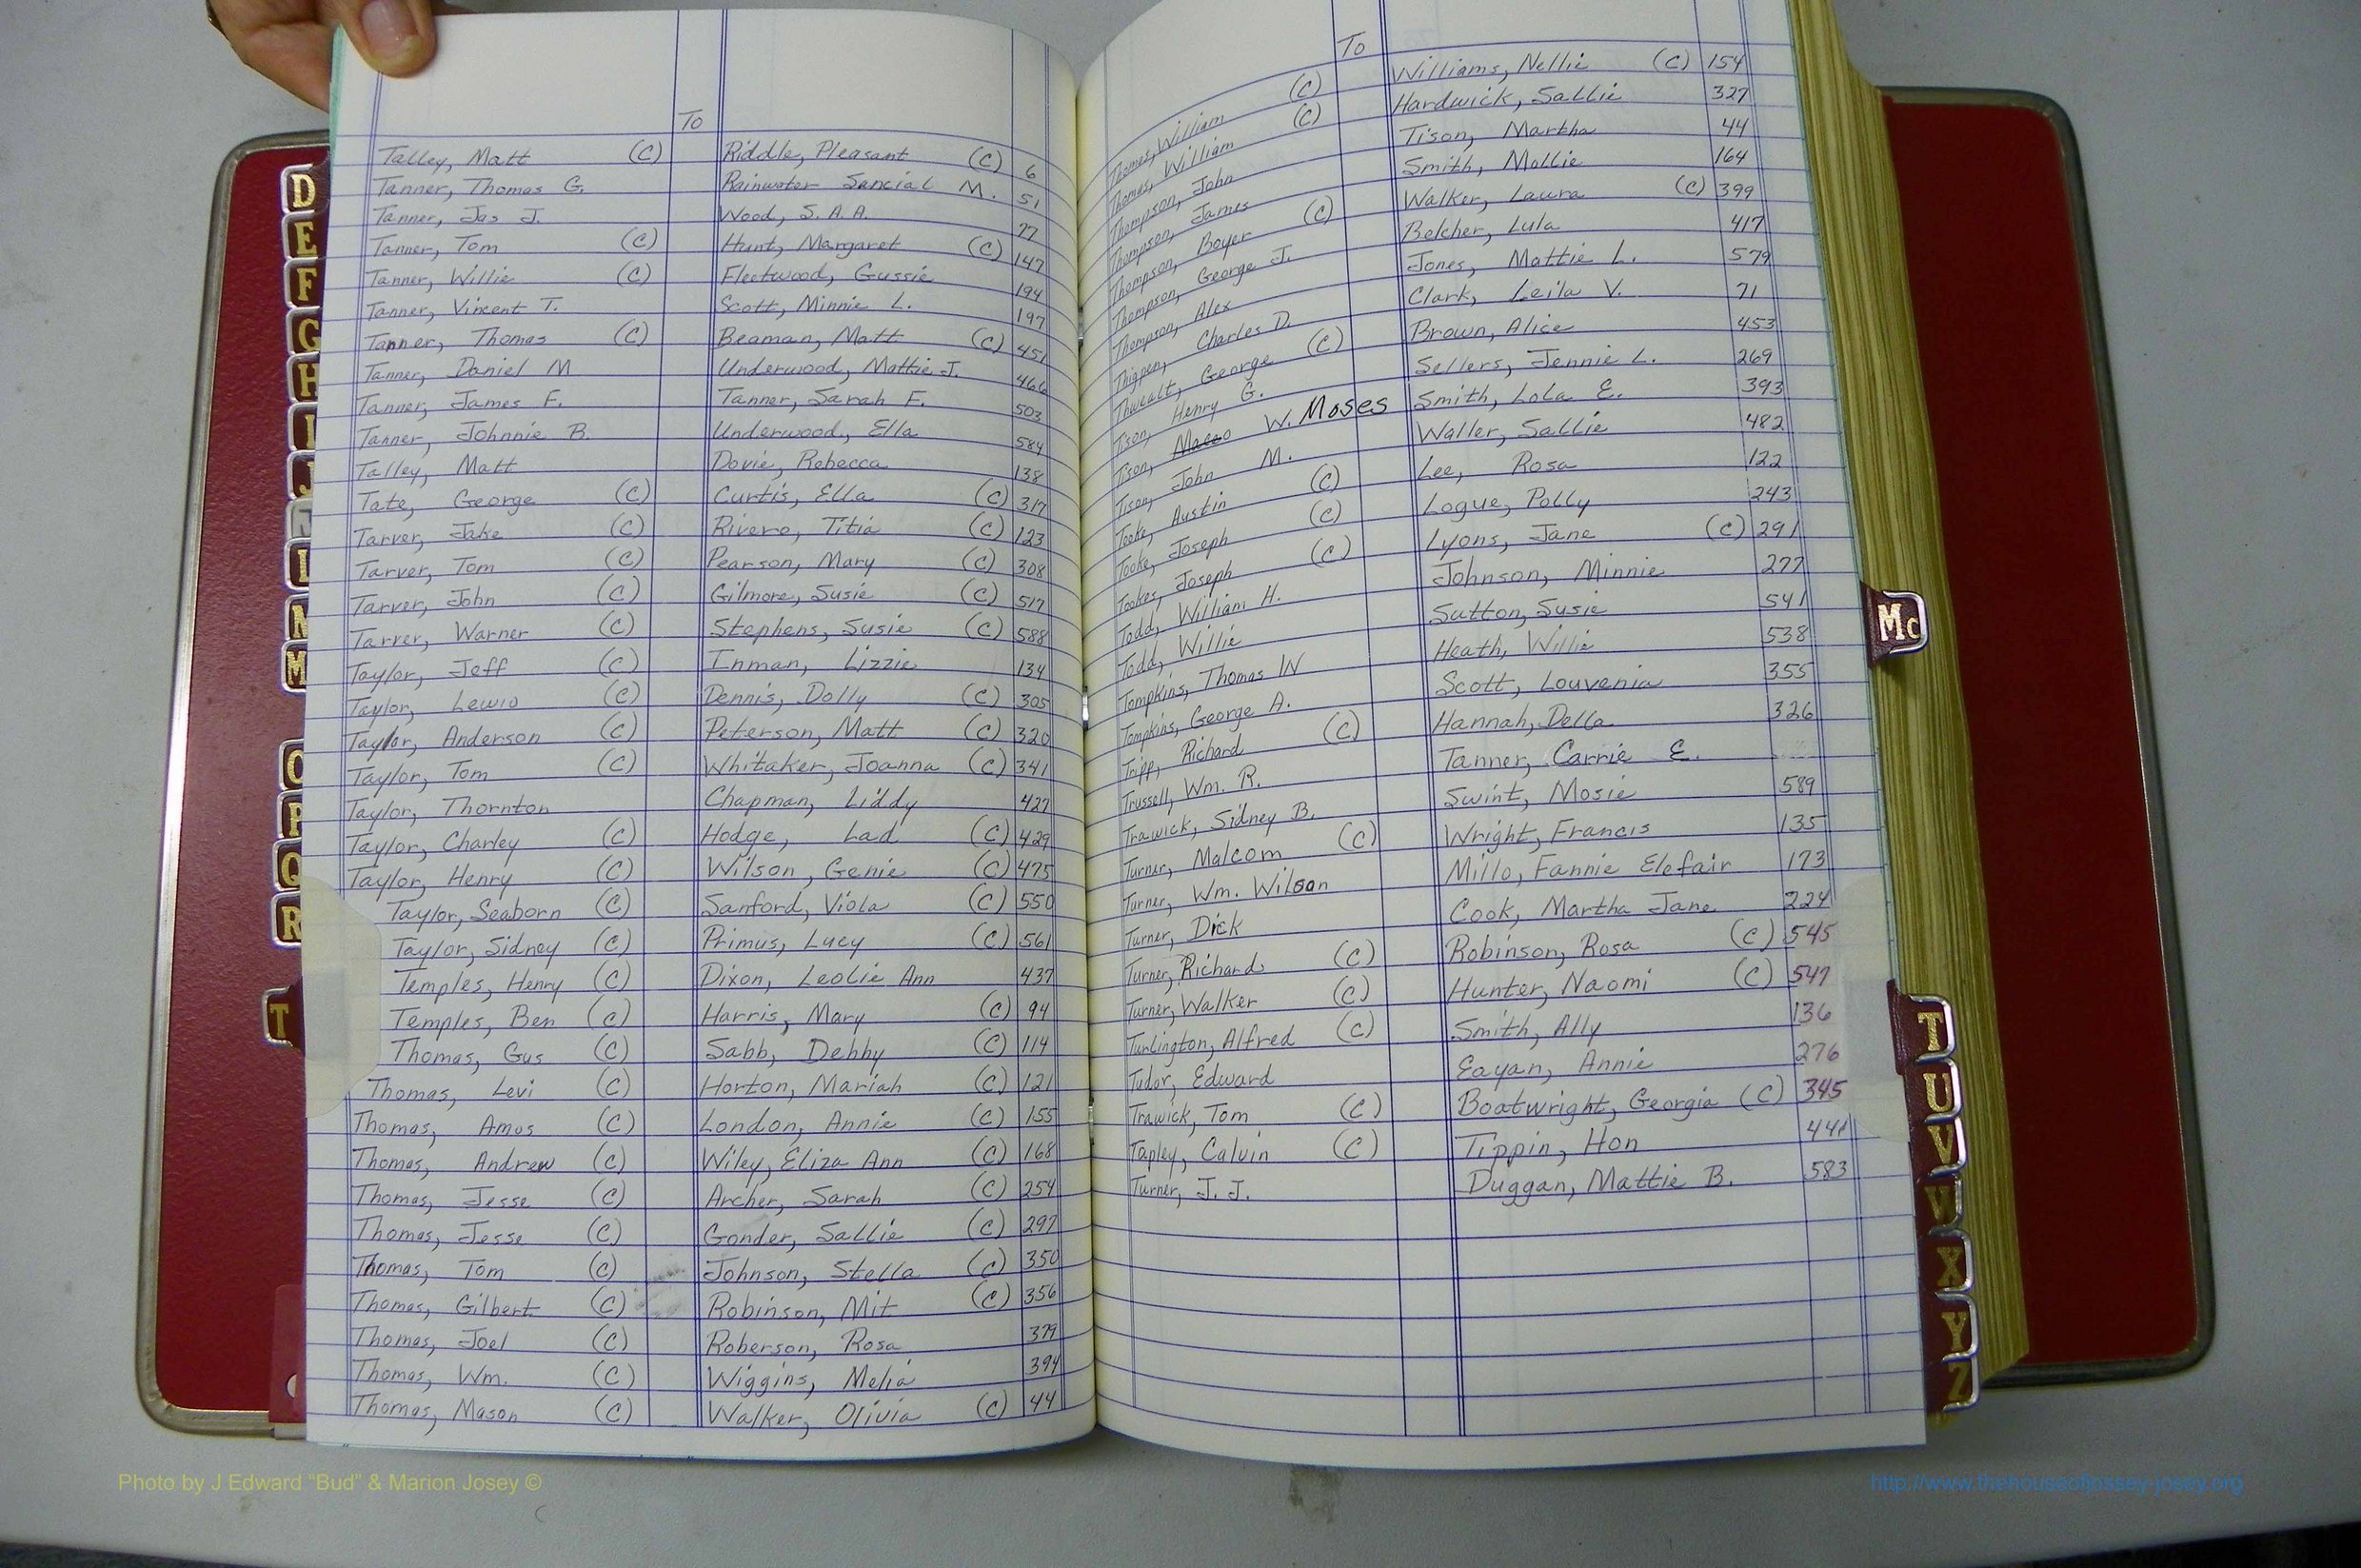 To
Talley, Matt (C) Riddle, Pleasant (C) 6
Tanner, Thomas G. Rainwater Sancial M. 51
Tanner, Jas J. Wood, S. A. A. 77
Tanner, Tom (C) Hunt, Margaret (C) 147
Tanner, Willie (C) Fleetwood, Gussie 194
Tanner, Vincent T. Scott, Minnie L. 197
Tanner, Thomas (C) Beaman, Matt (C) 451
Tanner, Daniel M Underwood, Mattie J. 466
Tanner, James F. Tanner, Sarah F. 503
Tanner, Johnnie B. Underwood, Ella 584
Talley, Matt Dovie, Rebecca 138
Tate, George (C) Curtis, Ella (C) 317
Tarver, Jake (C) Rivero, Titia (C) 123
Tarver, Tom (C) Pearson, Mary (C) 308
Tarver, John (C) Gilmore, Susie (C) 517
Tarver, Warner (C) Stephens, Susie (C) 588
Taylor, Jeff (C) Inman, Lizzie 134
Taylor, Lewis (C) Dennis, Dolly (C) 305
Taylor, Anderson (C) Peterson, Matt (C) 320
Taylor, Tom (C) Whitaker, Joanna (C) 341
Taylor, Thornton Chapman, Liddy 427
Taylor, Charley (C) Hodge, Lad (C) 429
Taylor, Henry (C) Wilson, Genie (C) 475
Taylor, Seaborn (C) Sanford, Viola (C) 550
Taylor, Sidney (C) Primus, Lucy (C) 561
Temples, Henry (C) Dixon, Leolie Ann 437
Temples, Ben (C) Harris, Mary (C) 94
Thomas, Gus (C) Sabb, Debby (C) 114
Thomas, Levi (C) Horton, Mariah (C) 121
Thomas, Amos (C) London, Annie (C) 155
Thomas, Andrew (C) Wiley, Eliza Ann (C) 168
Thomas, Jesse (C) Archer, Sarah (C) 254
Thomas, Jesse (C) Gonder, Sallie (C) 297
Thomas, Tom (C) Johnson, Stella (C) 350
Thomas, Gilbert (C) Robinson, Mit (C) 356
Thomas, Joel (C) Roberson, Rosa 379
Thomas, Wm. (C) Wiggins, Melia 394
Thomas, Mason (C) Walker, Olivia (C) 44
To
Thomas, William (C) Williams, Nellie (C) 154
Thomas, William (C) Hardwick, Sallie 327
Thompson, John Tison, Martha 44
Thompson, James Smith, Mollie 164
Thompson, Boyer (C) Walker, Laura (C) 399
Thompson, George J. Belcher, Lula 417
Thompson, Alex Jones, Mattie L. 579
Thigpen, Charles D. Clark, Leila V. 71
Thweatt, George (C) Brown, Alice 453
Tison, Henry G. Sellers, Jennie L. 269
Tison, W. Moses Smith, Lola E. 393
Tison, John M. Waller, Sallie 482
Tooke, Austin (C) Lee, Rosa 122
Tooke, Joseph (C) Logue, Polly 243
Tookes, Joseph (C) Lyons, Jane (C) 291
Todd, William H. Johnson, Minnie 277
Todd, Willie Sutton, Susie 541
Tompkins, Thomas W Heath, Willie 538
Tompkins, George A. Scott, Louvenia 355
Tripp, Richard (C) Hannah, Della 326
Trussell, Wm. R. Tanner, Carrie E.
Trawick, Sidney B. Swint, Mosie 589
Turner, Malcom (C) Wright, Francis 135
Turner, Wm. Wilson Millo, Fannie Elefair 173
Turner, Dick Cook, Martha Jane 224
Turner, Richard (C) Robinson, Rosa (C) 545
Turner, Walker (C) Hunter, Naomi (C) 547
Turlington, Alfred (C) Smith, Ally 136
Tudor, Edward Eayan, Annie 276
Trawick, Tom (C) Boatwright, Georgia (C) 345
Tapley, Calvin (C) Tippin, Hon 441
Turner, J. J. Duggan, Mattie B. 583
D
E
F
G
H
I
J
M
O
P
Q
R
T
Mc
T
U
V
W
X
Y
Z
Photo by J Edward "Bud" & Marion Josey ©
http://www.thehouseofjossey-josey.org